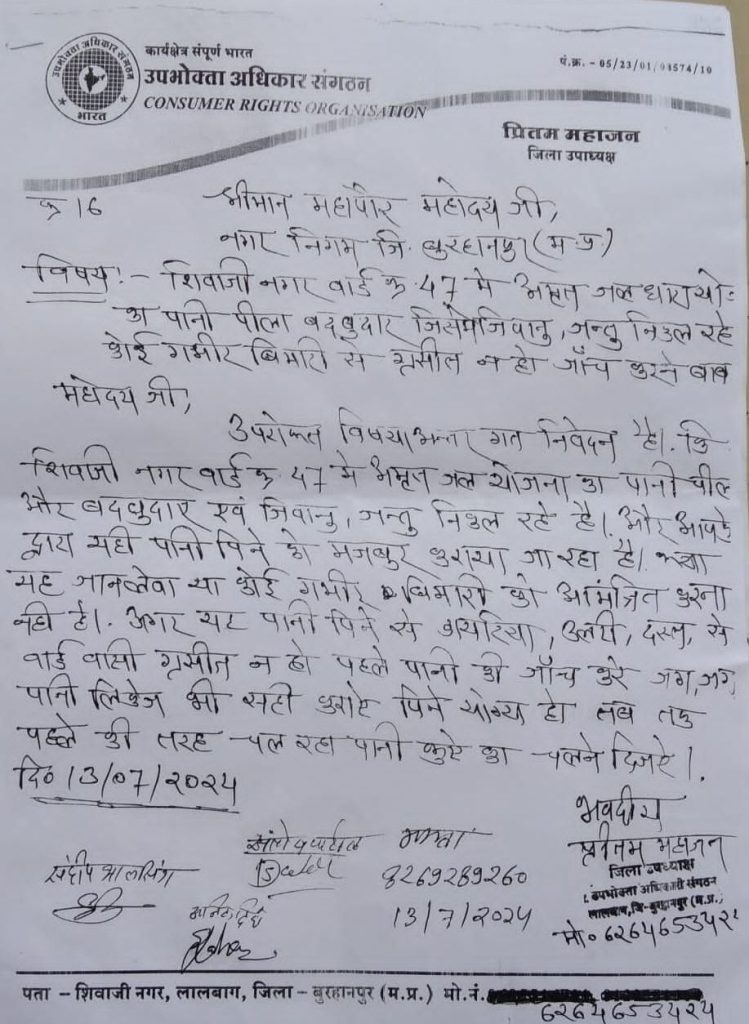 उपभोक्ता अधिकार संगठन
भारत
कार्यक्षेत्र संपूर्ण भारत
उपभोक्ता अधिकार संगठन
CONSUMER RIGHTS ORGANISATION
पं.क्र. - 05/23/01/03574/10
प्रितम महाजन
जिला उपाध्यक्ष
क्र 16 श्रीमान महापौर महोदय जी,
नगर निगम जि. बुरहानपुर (म.प्र.)
विषय:- शिवाजी नगर वार्ड क्र 47 मे अमृत जल धारा यो.
का पानी पीला बदबुदार जिसमे जिवानु, जन्तु निकल रहे
कोई गंभीर बिमारी से ग्रसीत न हो जाँच करने बाब
महोदय जी,
उपरोक्त विषयाअन्तरगत निवेदन है। कि
शिवाजी नगर वार्ड क्र 47 मे अमृत जल योजना का पानी पील
और बदबुदार एवं जिवानु, जन्तु निकल रहे है। और आपके
द्वारा यही पानी पिने को मजबुर कराया जा रहा है। क्या
यह जानलेवा या कोई गंभीर बिमारी को आमंत्रित करना
नही है। अगर यह पानी पिने से डायरिया, उलटी, दस्त, से
वार्ड वासी ग्रसीत न हो पहले पानी की जाँच करे जग, जग
पानी लिकेज भी सही कराऐ पिने योग्य हो तब तक
पहले की तरह चल रहा पानी कुऐ का चलने दिजऐ।
दि० 13/07/2024
भवदीय
प्रीतम महाजन
जिला उपाध्यक्ष
उपभोक्ता अधिकारी संगठन
लालबाग, जि-बुरहानपुर (म.प्र.)
मो० 6264653424
संदीप
8269289260
13/7/2024
पता - शिवाजी नगर, लालबाग, जिला - बुरहानपुर (म.प्र.) मो.नं.
6264653424